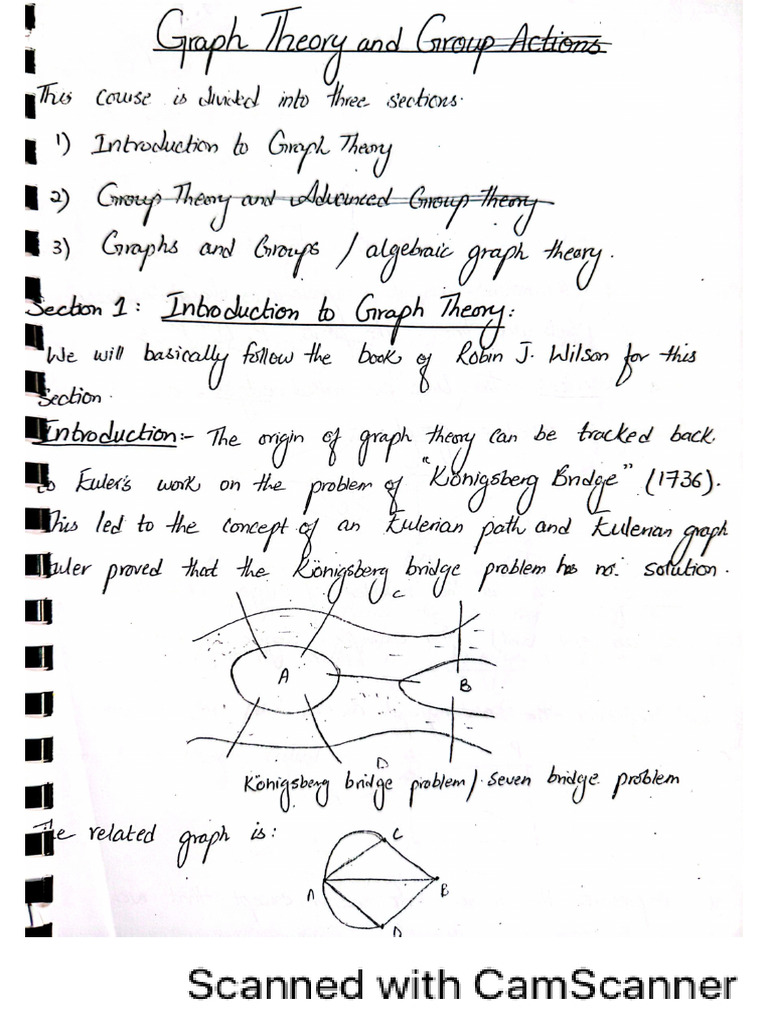 Graph Theory and Group Actions
This course is divided into three sections.
1) Introduction to Graph Theory
2) Group Theory and Advanced Group theory
3) Graphs and Groups / algebraic graph theory.
Section 1: Introduction to Graph Theory:
We will basically follow the book of Robin J. Wilson for this
Section.
Introduction:- The origin of graph theory can be tracked back
to Euler's work on the problem of "Königsberg Bridge" (1736).
This led to the concept of an Eulerian path and Eulerian graph
Euler proved that the Königsberg bridge problem has no solution.
C
A
B
D
Königsberg bridge problem/ seven bridge problem
The related graph is:
C
A
B
D
Scanned with CamScanner